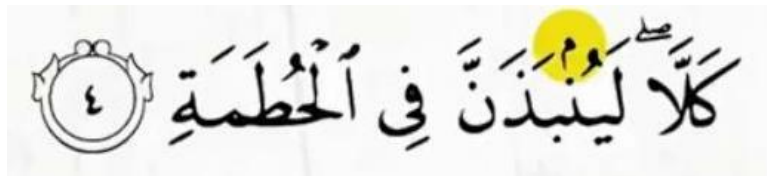 كَلَّا ۖ لَيُنۢبَذَنَّ فِى ٱلْحُطَمَةِ ٤